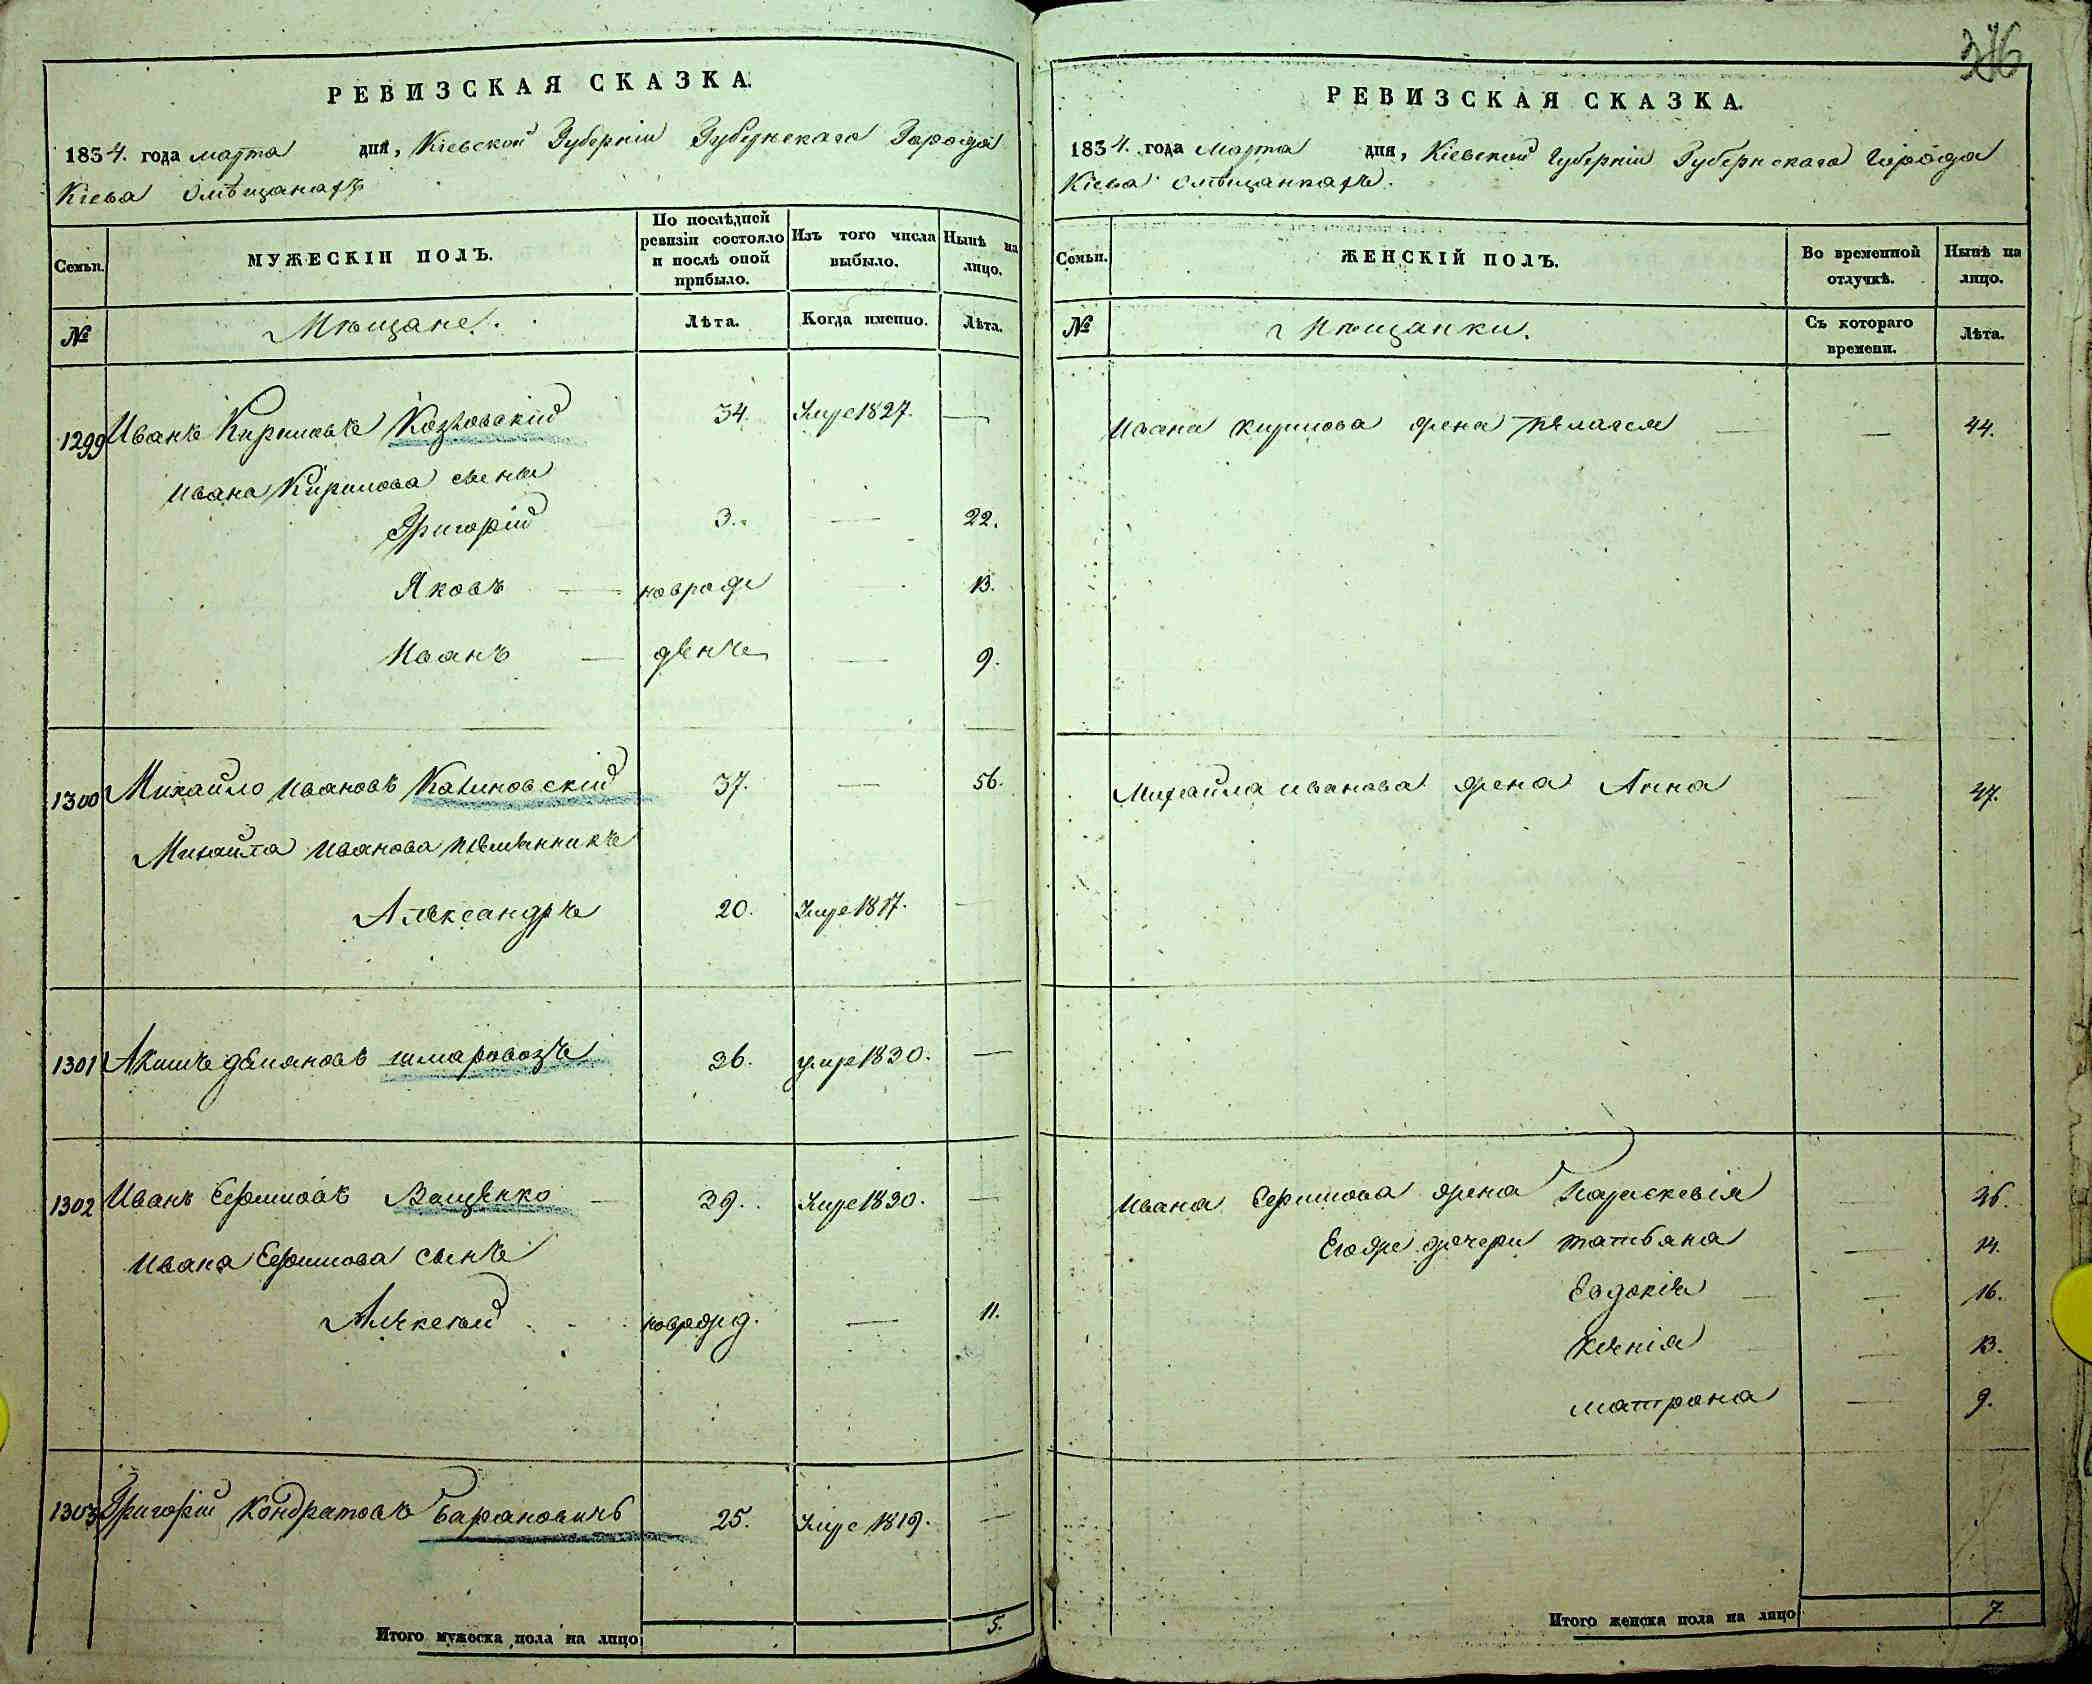 РЕВИЗСКАЯ СКАЗКА.
1834. года марта дня, Кіевской Губерніи Губернскаго Города
Кіева омѣщанахъ
Семьи.
МУЖЕСКІИ ПОЛЪ.
По послѣдней ревизіи состояло и послѣ оной прибыло.
Изъ того числа выбыло.
Нынѣ на лицо.
№
Мѣщане.
Лѣта.
Когда именно.
Лѣта.
1299 Иванъ Кириловъ Козловскій 34. Умре 1827. —
Ивана Кирилова сыны
Григорій 3. — 22.
Яковъ — новрож — 13.
Иванъ — денъ — 9.
1300 Михайло Ивановъ Калиновскій 37. — 56.
Михайла Иванова племянникъ
Александръ 20. Умре 1817. —
1301 Акимъ демяновъ шмаровозъ 26. умре 1830. —
1302 Иванъ Ефимовъ Ващенко — 39. Умре 1830. —
Ивана Ефимова сынъ
Алексей новрожд. — 11.
1303 Григорій Кондратовъ Барановичъ 25. Умре 1819. —
Итого мужеска пола на лицо 5.
РЕВИЗСКАЯ СКАЗКА.
1834. года Марта дня, Кіевской Губерніи Губернскаго Города
Кіева омѣщанкахъ.
Семьи.
ЖЕНСКІЙ ПОЛЪ.
Во временной отлучкѣ.
Нынѣ на лицо.
№
Мѣщанки.
Съ котораго времени.
Лѣта.
Ивана Кирилова жена Пелагея — — 44.
Михайла Иванова жена Анна — 47.
Ивана Ефимова жена Параскевія — 36.
Егоже дочери татьяна — 14.
Евдокія — — 16.
Ксенія — — 13.
матрона — 9.
Итого женска пола на лицо 7